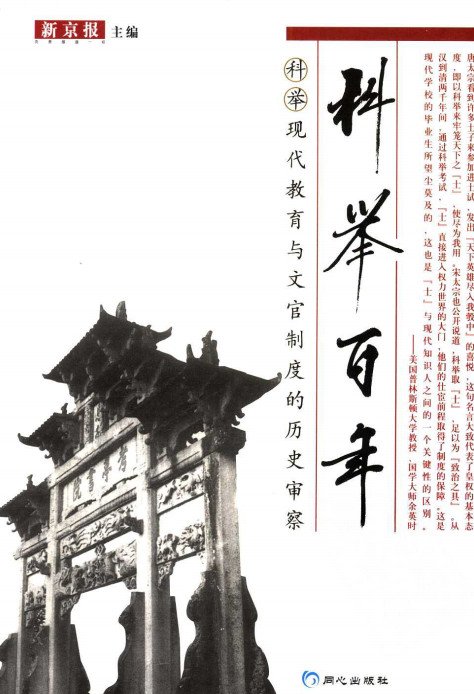 新京报 主编
科举百年
科举现代教育与文官制度的历史审察
唐太宗看到许多士子来参加进士试，发出「天下英雄尽入我彀中」的喜悦，这句名言大致代表了皇权的基本态
度，即以科举来牢笼天下之「士」，使尽为我用。宋太宗也公开说道，科举取「士」，足以为「致治之具」。从
汉到清两千年间，通过科举考试，「士」直接进入权力世界的大门，他们的仕宦前程取得了制度的保障。这是
现代学校的毕业生所望尘莫及的，这也是「士」与现代知识人之间的一个关键性的区别。
——美国普林斯顿大学教授、国学大师余英时
同心出版社